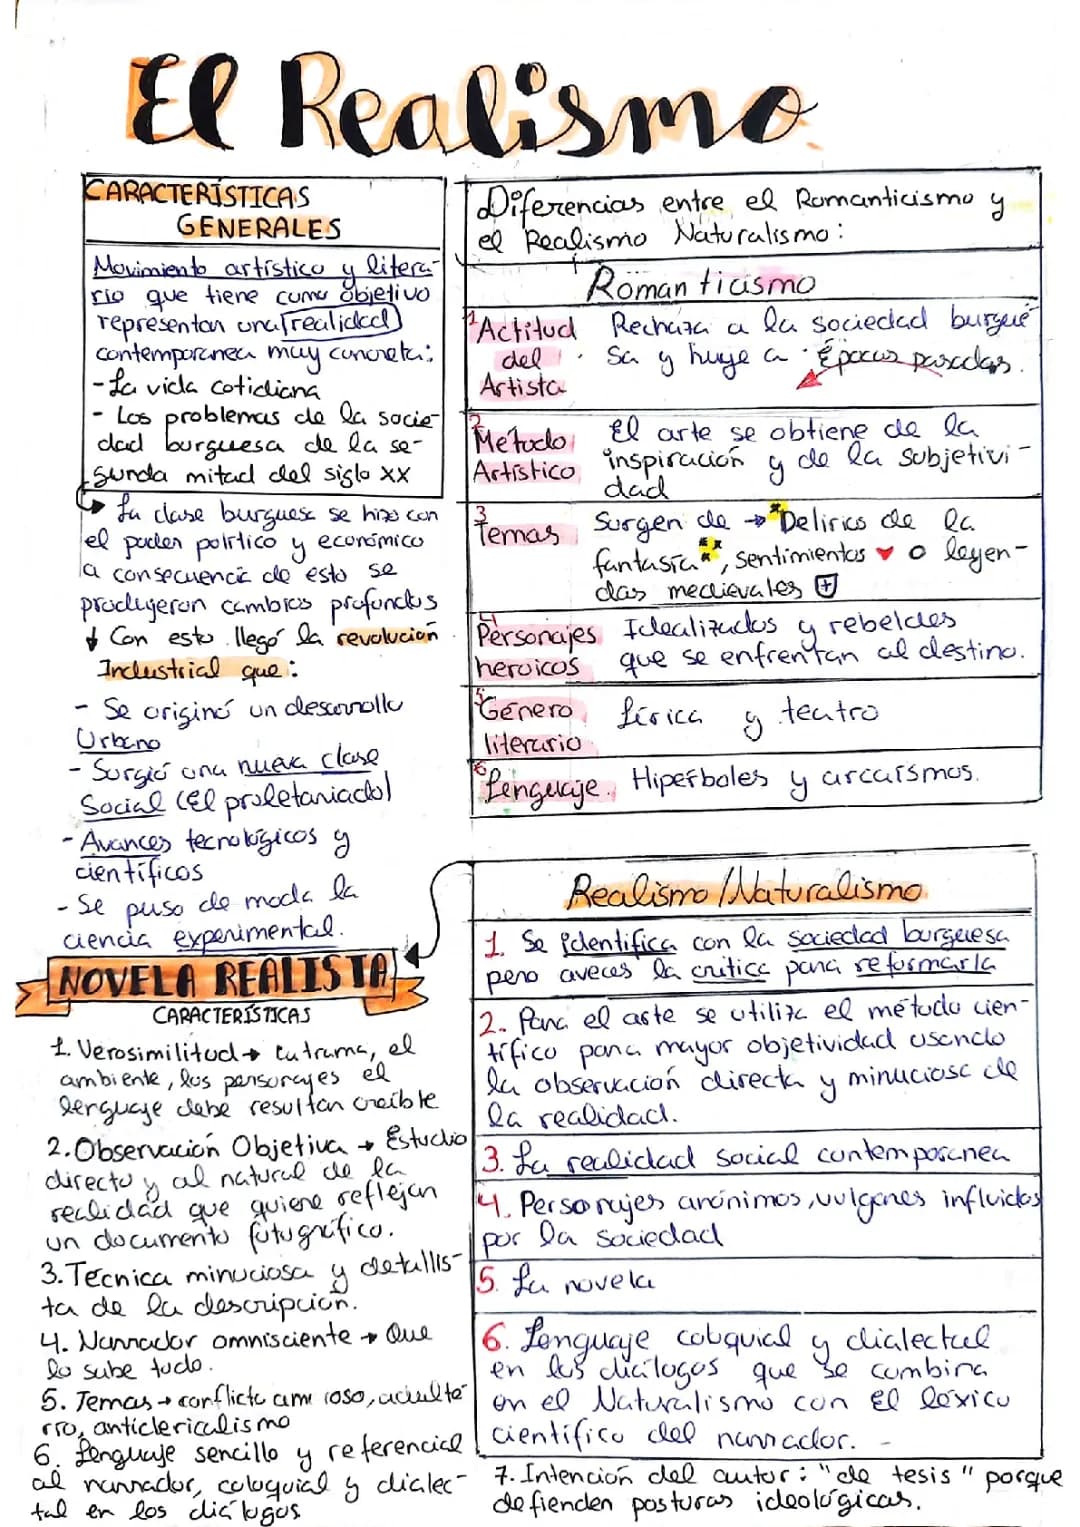 El Realismo.
CARACTERÍSTICAS
GENERALES
Movimiento artístico y litera-
rio que tiene como objetivo
representar una realidad
contemporanea muy concreta:
- La vida cotidiana
- Los problemas de la socie-
dad burguesa de la se-
gunda mitad del siglo XX
La clase burguesa se hizo con
el poder político y económico
a consecuencia de esto se
produjeron cambios profundos
Con esto llegó la revolución
Industrial que:
- Se originó un desarrollo
Urbano
- Surgió una nueva clase
Social (El proletariado)
- Avances tecnológicos y
científicos
- Se puso de moda la
ciencia experimental.
NOVELA REALISTA
CARACTERÍSTICAS
1. Verosimilitud → La trama, el
ambiente, los personajes el
lenguaje debe resultar creible
2. Observación Objetiva → Estudio
directo y al natural de la
realidad que quiere reflejar
un documento fotográfico.
3. Técnica minuciosa y detallis-
ta de la descripción.
4. Narrador omnisciente → Que
lo sabe todo.
5. Temas → conflicto amoroso, adulte
rio, anticlericalismo
6. Lenguaje sencillo y referencial
al narrador, coloquial y dialec-
tal en los diálogos
Diferencias entre el Romanticismo y
el Realismo Naturalismo:
Romanticismo
1 Actitud
del
Artista
Rechaza a la sociedad burgue
sa y huye a Épocas pasadas.
2 Método
Artístico
El arte se obtiene de la
inspiración y de la subjetivi-
dad
3 Temas
Surgen de → Delirios de la
fantasía, sentimientos ♥ o leyen-
das medievales
4 Personajes
heroicos
Idealizados y rebeldes
que se enfrentan al destino.
5 Género
literario
Lírica y teatro
6 Lenguaje.
Hiperboles y arcaísmos.
Realismo/Naturalismo
1. Se identifica con la sociedad burguesa
pero aveces la critica para reformarla
2. Para el arte se utiliza el método cien-
tífico para mayor objetividad usando
la observación directa y minuciosa de
la realidad.
3. La realidad social contemporanea
4. Personajes anónimos, vulgares influidos
por la sociedad
5. La novela
6. Lenguaje coloquial y dialectal
en los diálogos que se combina
en el Naturalismo con El léxico
científico del narrador. -
7. Intención del autor: "de tesis" porque
defienden posturas ideológicas.